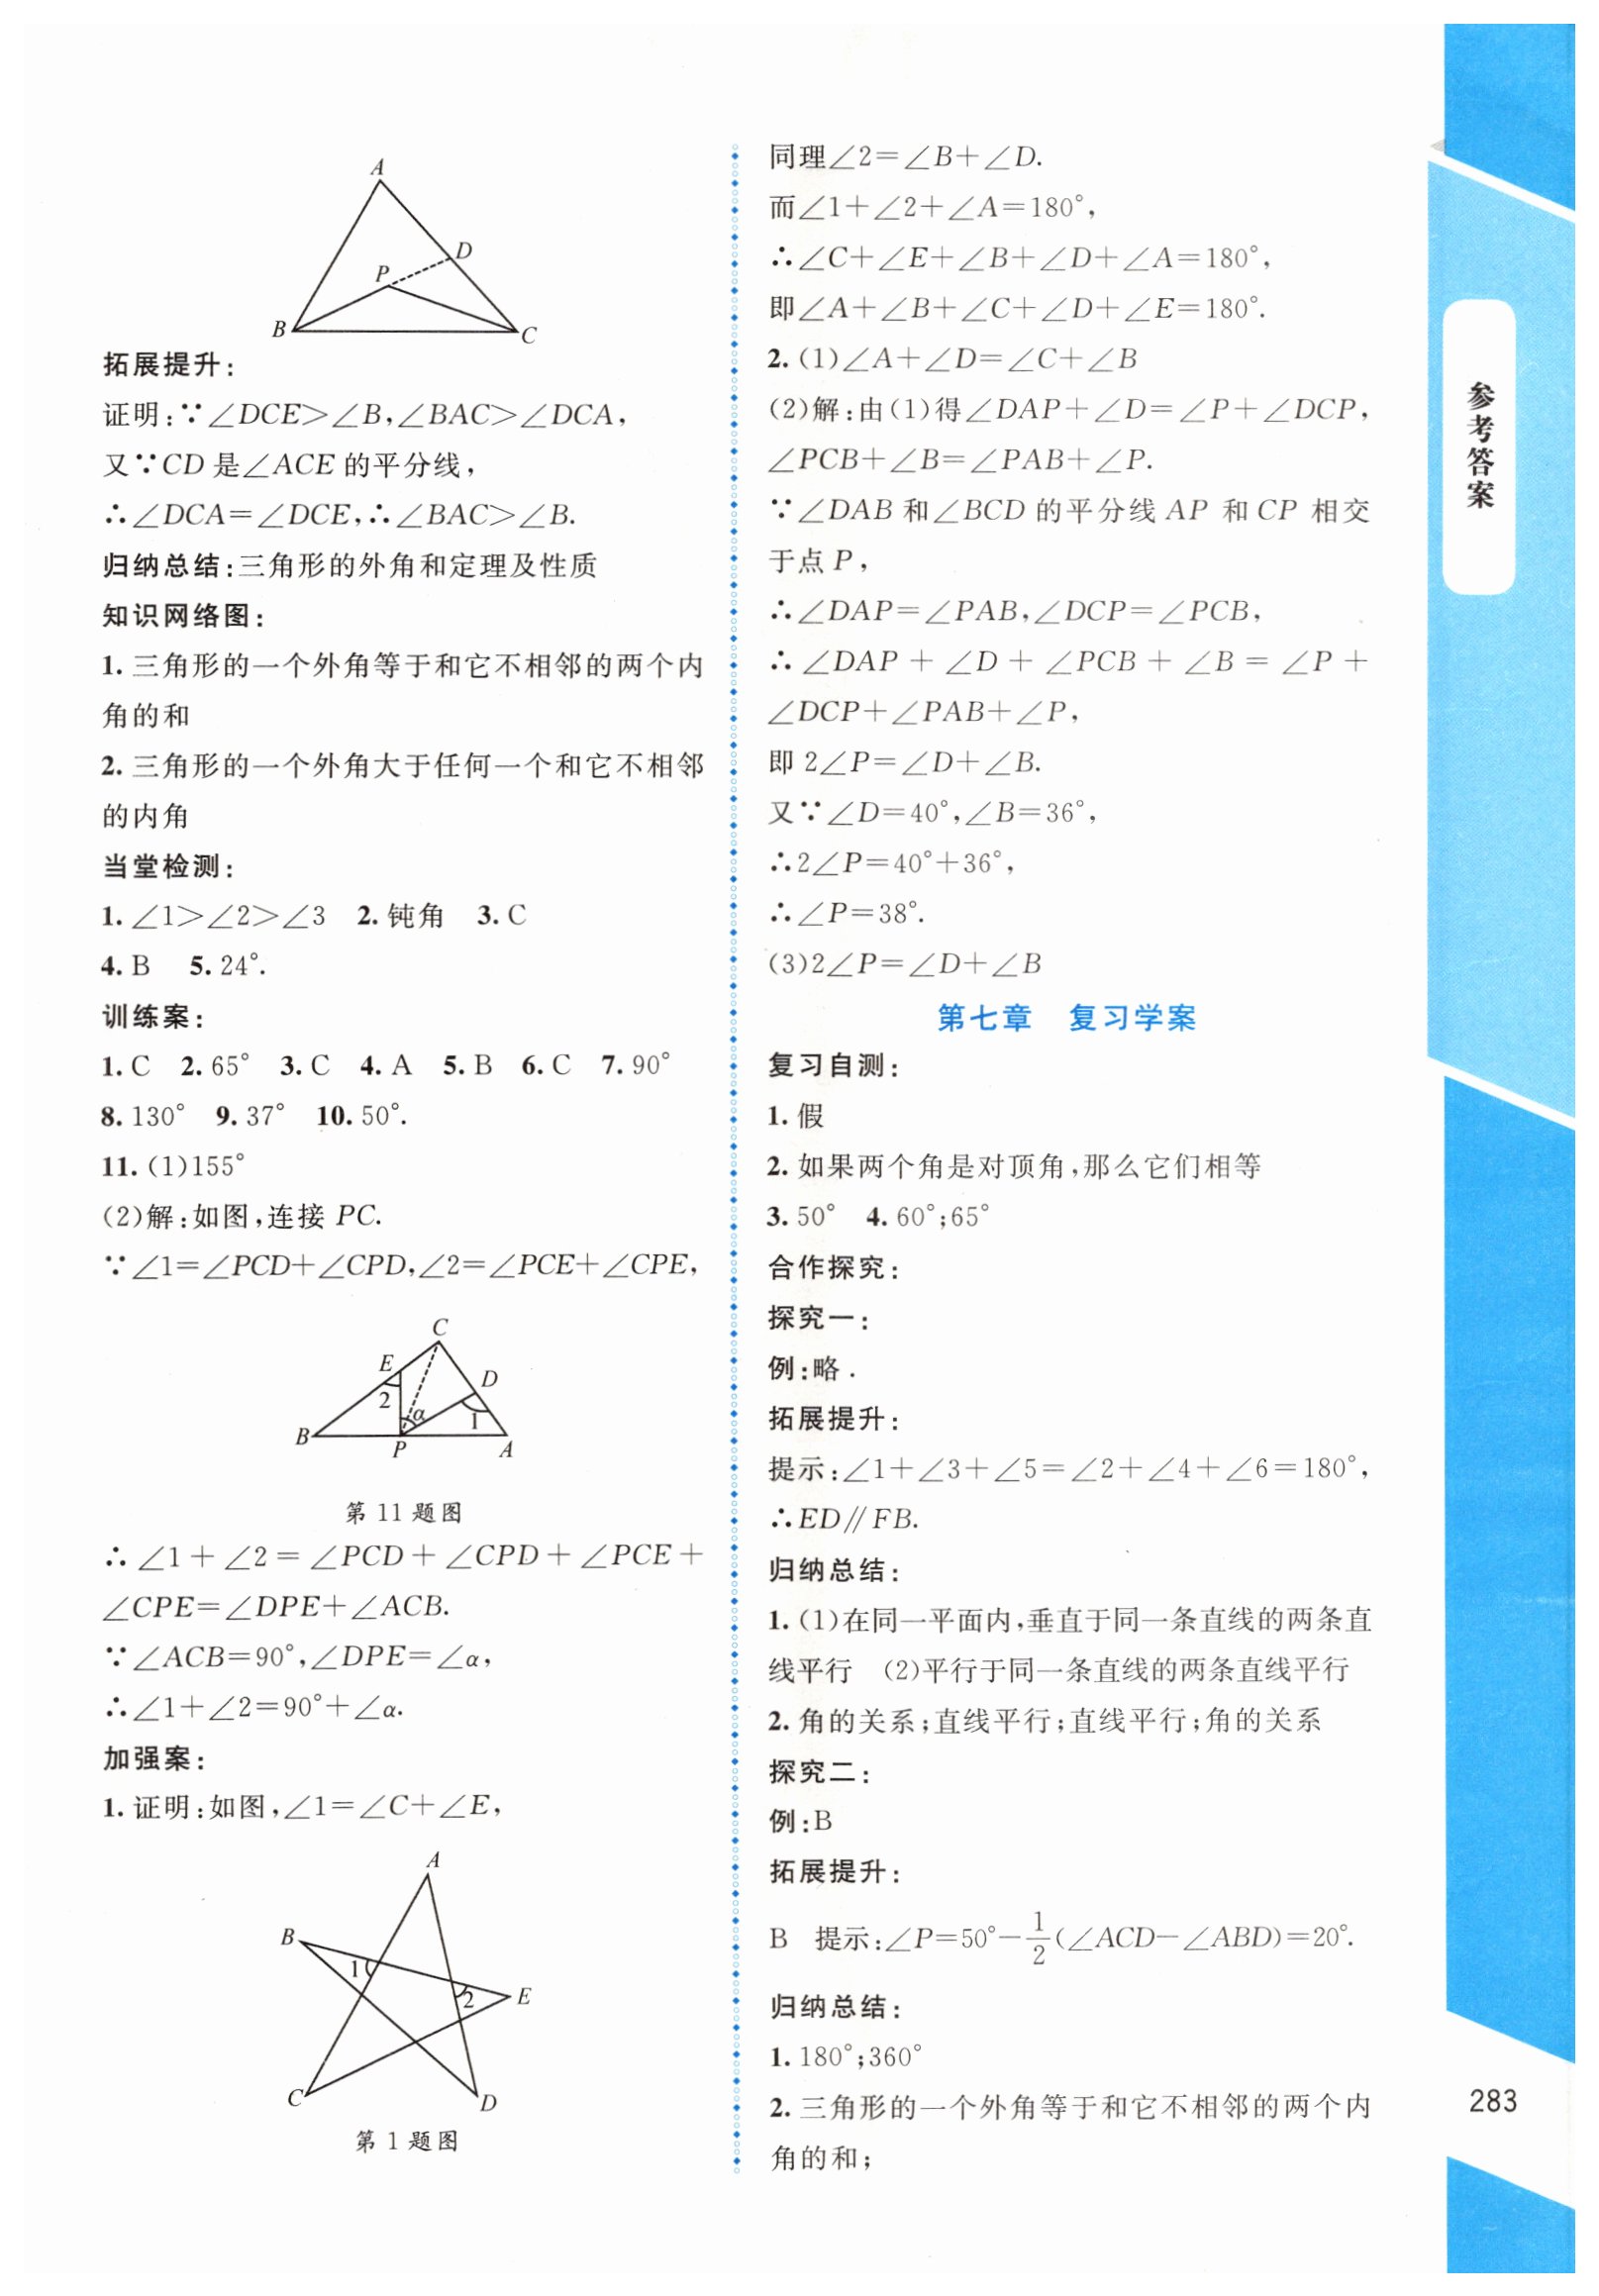 A
D
P
B
C
拓展提升:
证明:∵∠DCE>∠B,∠BAC>∠DCA,
又∵CD 是∠ACE 的平分线,
∴∠DCA=∠DCE,∴∠BAC>∠B.
归纳总结:三角形的外角和定理及性质
知识网络图:
1. 三角形的一个外角等于和它不相邻的两个内
角的和
2. 三角形的一个外角大于任何一个和它不相邻
的内角
当堂检测:
1. ∠1>∠2>∠3 2. 钝角 3. C
4. B 5. 24°.
训练案:
1. C 2. 65° 3. C 4. A 5. B 6. C 7. 90°
8. 130° 9. 37° 10. 50°.
11. (1)155°
(2)解:如图,连接 PC.
∵∠1=∠PCD+∠CPD,∠2=∠PCE+∠CPE,
C
E
D
2
α
1
B
P
A
第 11 题图
∴∠1+∠2=∠PCD+∠CPD+∠PCE+
∠CPE=∠DPE+∠ACB.
∵∠ACB=90°,∠DPE=∠α,
∴∠1+∠2=90°+∠α.
加强案:
1. 证明:如图,∠1=∠C+∠E,
A
B
1
2
E
C
D
第 1 题图
同理∠2=∠B+∠D.
而∠1+∠2+∠A=180°,
∴∠C+∠E+∠B+∠D+∠A=180°,
即∠A+∠B+∠C+∠D+∠E=180°.
2. (1)∠A+∠D=∠C+∠B
(2)解:由(1)得∠DAP+∠D=∠P+∠DCP,
∠PCB+∠B=∠PAB+∠P.
∵∠DAB 和∠BCD 的平分线 AP 和 CP 相交
于点 P,
∴∠DAP=∠PAB,∠DCP=∠PCB,
∴∠DAP+∠D+∠PCB+∠B=∠P+
∠DCP+∠PAB+∠P,
即 2∠P=∠D+∠B.
又∵∠D=40°,∠B=36°,
∴2∠P=40°+36°,
∴∠P=38°.
(3)2∠P=∠D+∠B
第七章 复习学案
复习自测:
1. 假
2. 如果两个角是对顶角,那么它们相等
3. 50° 4. 60°;65°
合作探究:
探究一:
例:略.
拓展提升:
提示:∠1+∠3+∠5=∠2+∠4+∠6=180°,
∴ED∥FB.
归纳总结:
1. (1)在同一平面内,垂直于同一条直线的两条直
线平行 (2)平行于同一条直线的两条直线平行
2. 角的关系;直线平行;直线平行;角的关系
探究二:
例:B
拓展提升:
B 提示:∠P=50°-1/2(∠ACD-∠ABD)=20°.
归纳总结:
1. 180°;360°
2. 三角形的一个外角等于和它不相邻的两个内
角的和;
参考答案
283